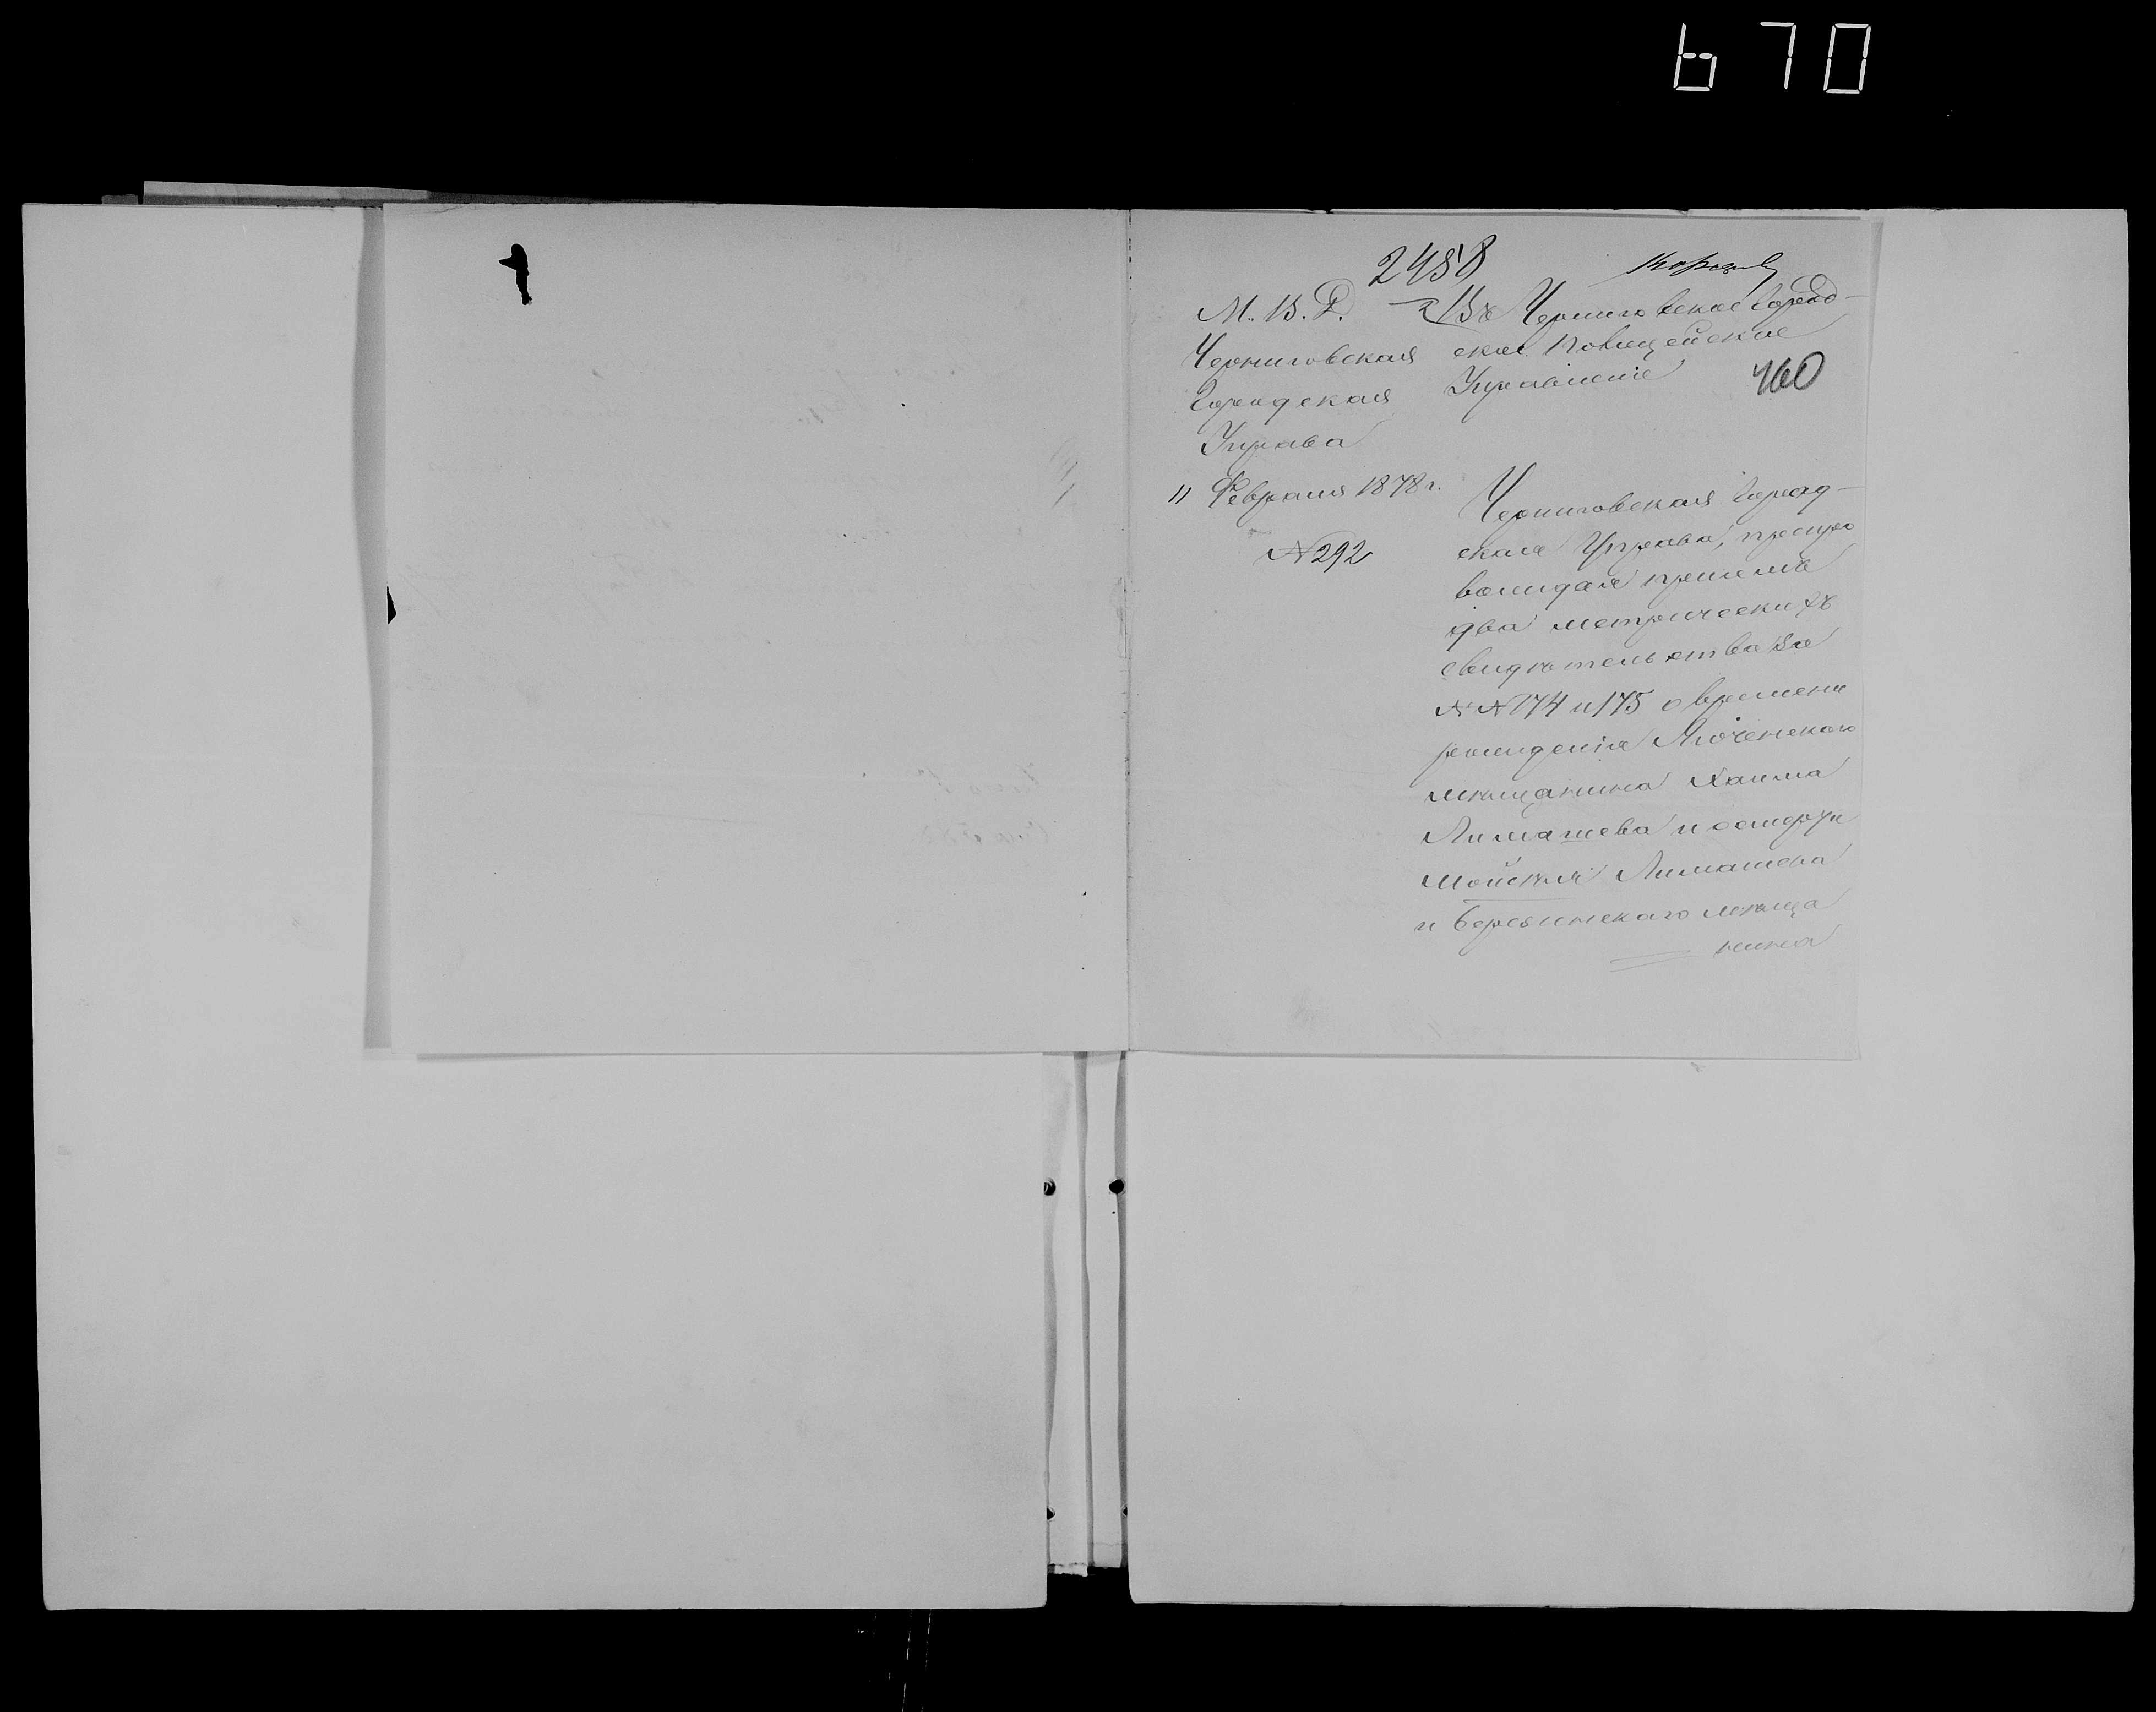 670
2458
М. В. Д.
Черниговская
Городская
Управа
11 Февраля 1878 г.
№ 292
Въ Черниговское Город-
ское Полицейское
Управленіе
460
Черниговская Город-
ская Управа, препро
вождая при семъ
два метрическихъ
свидѣтельства за
№№ 174 и 175 о времени
рожденія
мѣщанина Хаима
Лимашева и сестры
Лимашева
и Березинскаго мѣща
нина